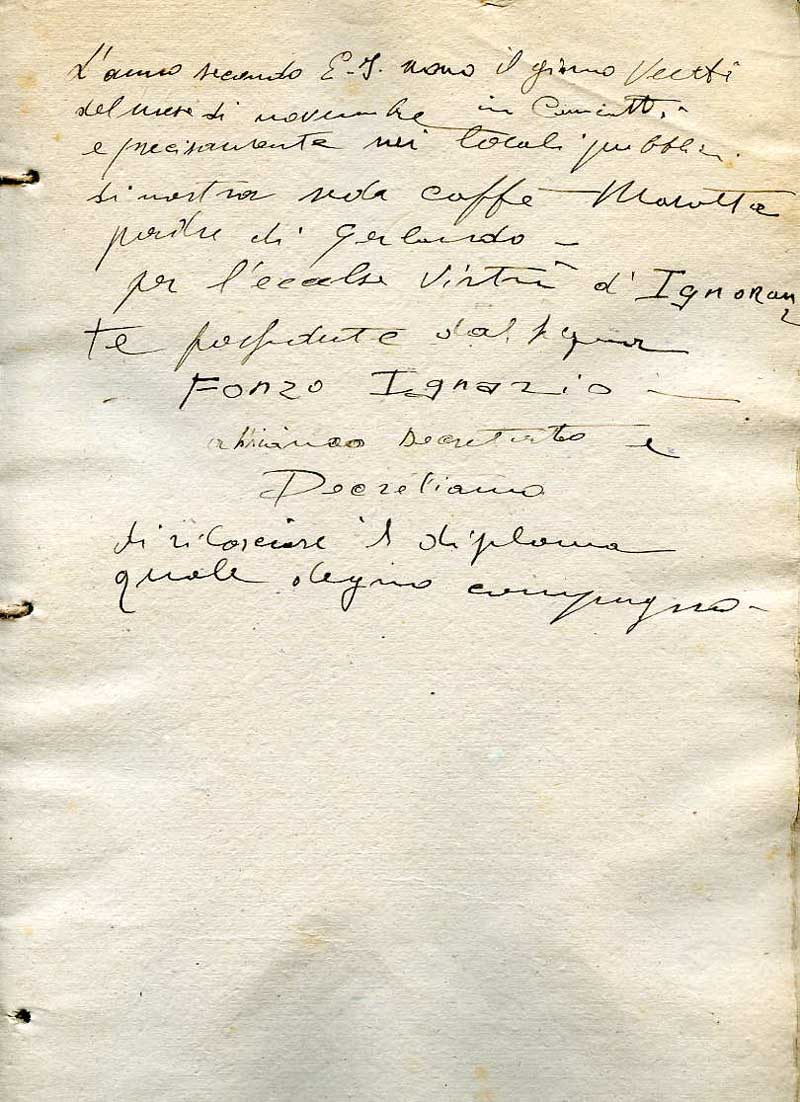 L'anno secondo E-I. nono il giorno Venti
del mese di novembre in Canicattì
e precisamente nei locali pubblici
di nostra sede caffè Marotta
padre di Gerlando -
per l'eccelse Virtù d'Ignoran
te possedute dal signor
Fonzo Ignazio -
abbiamo decretato e
Decretiamo
di rilasciare il diploma
quale degno compagno -